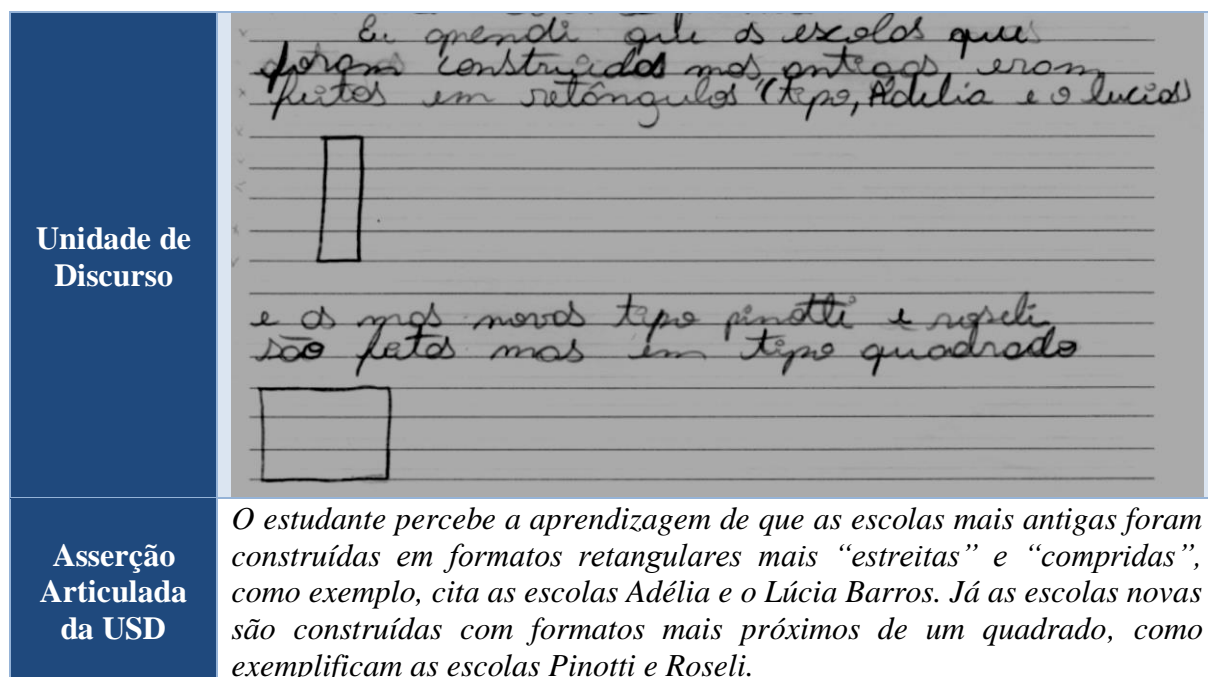 Unidade de
Discurso
Eu aprendi que as escolas que
foram construidas mas antigas eram
feitas em retângulos (tipo, Adelia e o lucias)
e as mas novas tipo pinotti e roseli
são fetas mas em tipo quadrado
Asserção
Articulada
da USD
O estudante percebe a aprendizagem de que as escolas mais antigas foram
construídas em formatos retangulares mais “estreitas” e “compridas”,
como exemplo, cita as escolas Adélia e o Lúcia Barros. Já as escolas novas
são construídas com formatos mais próximos de um quadrado, como
exemplificam as escolas Pinotti e Roseli.